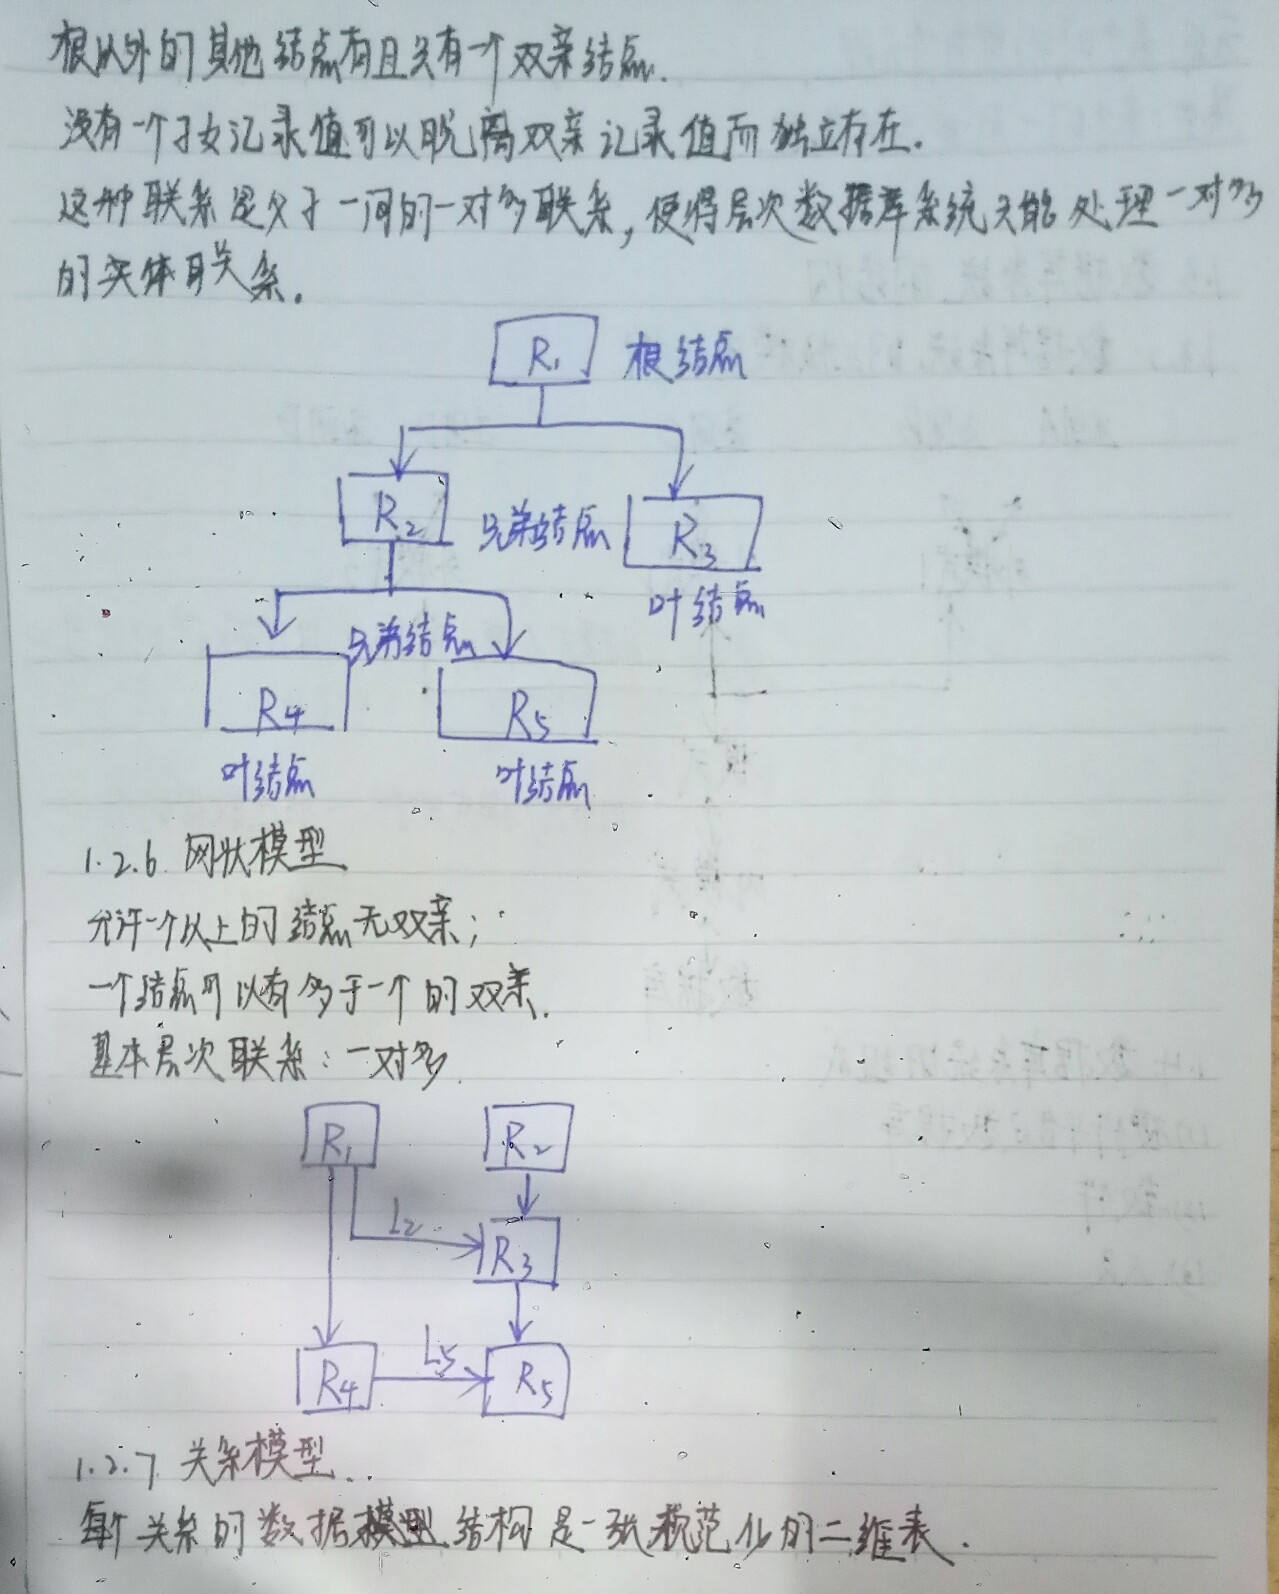 根以外的其他结点有且只有一个双亲结点.
没有一个子女记录值可以脱离双亲记录值而独立存在.
这种联系是父子一间的一对多联系,使得层次数据库系统只能处理一对多
的实体联系.
R1 根结点
R2 兄弟结点 R3
叶结点
兄弟结点
R4 R5
叶结点 叶结点
1.2.6 网状模型
允许一个以上的结点无双亲;
一个结点可以有多于一个的双亲.
基本层次联系:一对多
R1 R2
L2
R3
L5
R4 R5
1.2.7 关系模型
每个关系的数据模型结构是一张规范化的二维表.